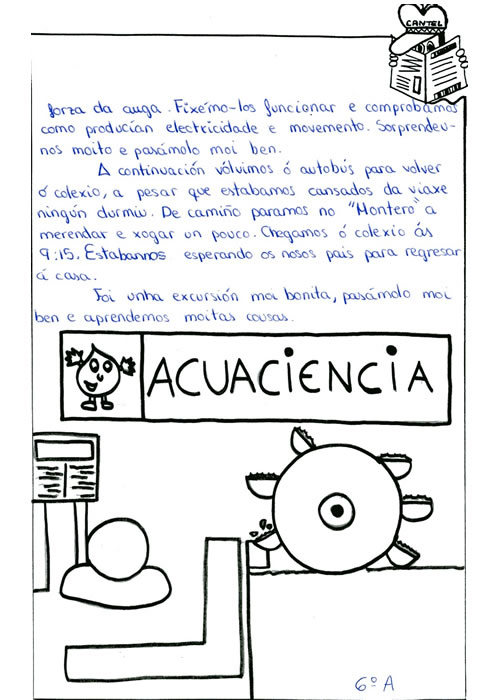 CANTEL
forza da auga. Fixémo-los funcionar e comprobamos
como producían electricidade e movemento. Sorprendeu-
nos moito e pasámolo moi ben.
A continuación vólvimos ó autobús para volver
ó colexio, a pesar que estabamos cansados da viaxe
ningún durmiu. De camiño paramos no "Montero" a
merendar e xogar un pouco. Chegamos ó colexio ás
9:15. Estabannos esperando os nosos pais para regresar
á casa.
Foi unha excursión moi bonita, pasámolo moi
ben e aprendemos moitas cousas.
ACUACIENCIA
6º A